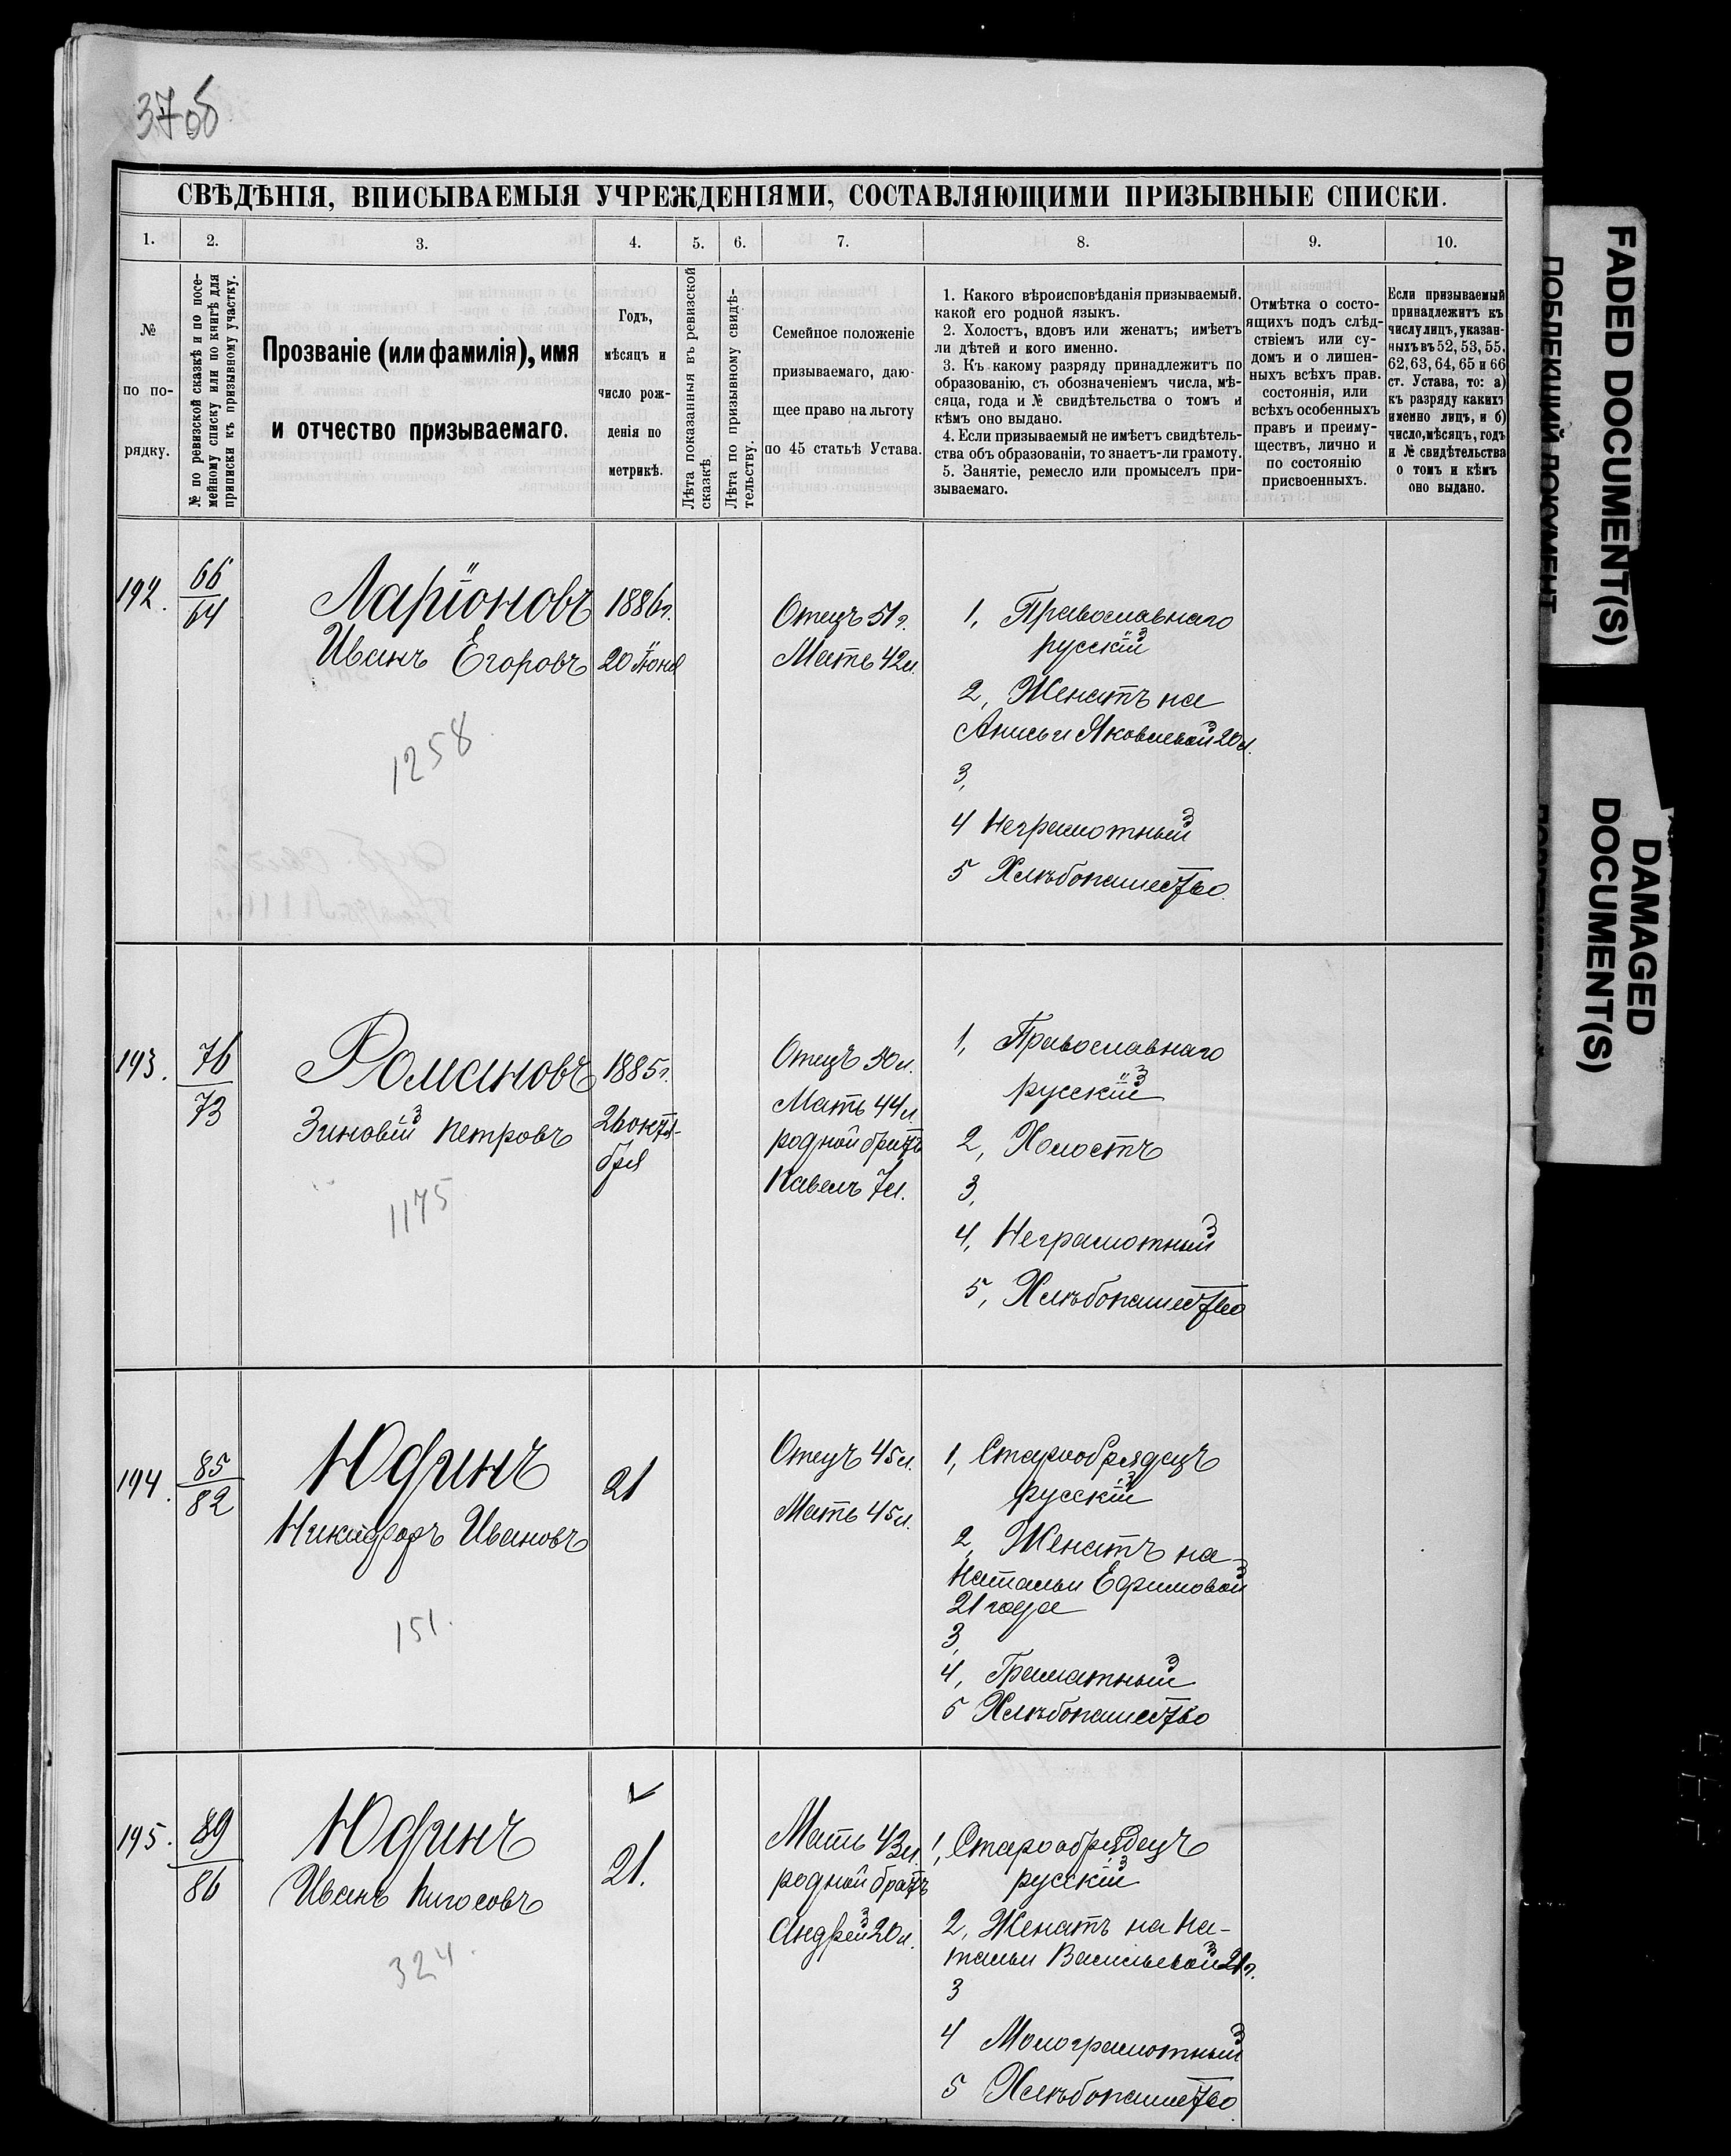 37об
СВѢДѢНІЯ, ВПИСЫВАЕМЫЯ УЧРЕЖДЕНІЯМИ, СОСТАВЛЯЮЩИМИ ПРИЗЫВНЫЕ СПИСКИ.
1. 2. 3. 4. 5. 6. 7. 8. 9. 10.
№
по по-
рядку.
№ по ревизской сказкѣ и по посе-
мейному списку или по книгѣ для
приписки къ призывному участку.
Прозваніе (или фамилія), имя
и отчество призываемаго.
Годъ,
мѣсяцъ и
число рож-
денія по
метрикѣ.
Лѣта показанныя въ ревизской
сказкѣ.
Лѣта по призывному свидѣ-
тельству.
Семейное положеніе
призываемаго, даю-
щее право на льготу
по 45 статьѣ Устава.
1. Какого вѣроисповѣданія призываемый.
какой его родной языкъ.
2. Холостъ, вдовъ или женатъ; имѣетъ
ли дѣтей и кого именно.
3. Къ какому разряду принадлежитъ по
образованію, съ обозначеніемъ числа, мѣ-
сяца, года и № свидѣтельства о томъ и
кѣмъ оно выдано.
4. Если призываемый не имѣетъ свидѣтель-
ства объ образованіи, то знаетъ-ли грамоту.
5. Занятіе, ремесло или промыселъ при-
зываемаго.
Отмѣтка о состо-
ящихъ подъ слѣд-
ствіемъ или су-
домъ и о лишен-
ныхъ всѣхъ прав.
состоянія, или
всѣхъ особенныхъ
правъ и преиму-
ществъ, лично и
по состоянію
присвоенныхъ.
Если призываемый
принадлежитъ къ
числу лицъ, указан-
ныхъ въ 52, 53, 55,
62, 63, 64, 65 и 66
ст. Устава, то: а)
къ разряду какихъ
именно лицъ, и б)
число, мѣсяцъ, годъ
и № свидѣтельства
о томъ и кѣмъ
оно выдано.
192.
66
64
Ларіоновъ
Иванъ Егоровъ
1258
1886г.
20 Іюня
Отецъ 51г.
Мать 42л.
1, Православнаго
русскій
2, Женатъ на
Анисьи Яковлевой 20л.
3,
4 Неграмотный
5 Хлѣбопашество.
193.
76
73
Романовъ
Зиновій Петровъ
1175
1885г.
26 октя-
бря
Отецъ 50л.
Мать 44л
родной братъ
Павелъ 7л.
1, Православнаго
русскій
2, Холостъ
3,
4, Неграмотный
5, Хлѣбопашество
194.
85
82
Юфинъ
Никифоръ Ивановъ
151.
21
Отецъ 45л.
Мать 45л.
1, Старообрядецъ
русскій
2, Женатъ на
Натальи Ефимовой
21 года
3,
4, Граматный
5 Хлѣбопашество
195.
89
86
Юфинъ
Иванъ Пигосовъ
324.
21.
Мать 43л.
родной братъ
Андрей 20л.
1, Старообрядецъ
русскій
2, Женатъ на На-
тальи Васильевой 21г.
3
4 Малограмотный
5 Хлѣбопашество.
FADED DOCUMENT(S)
ПОБЛЕКШИЙ ДОКУМЕНТ
DAMAGED
DOCUMENT(S)